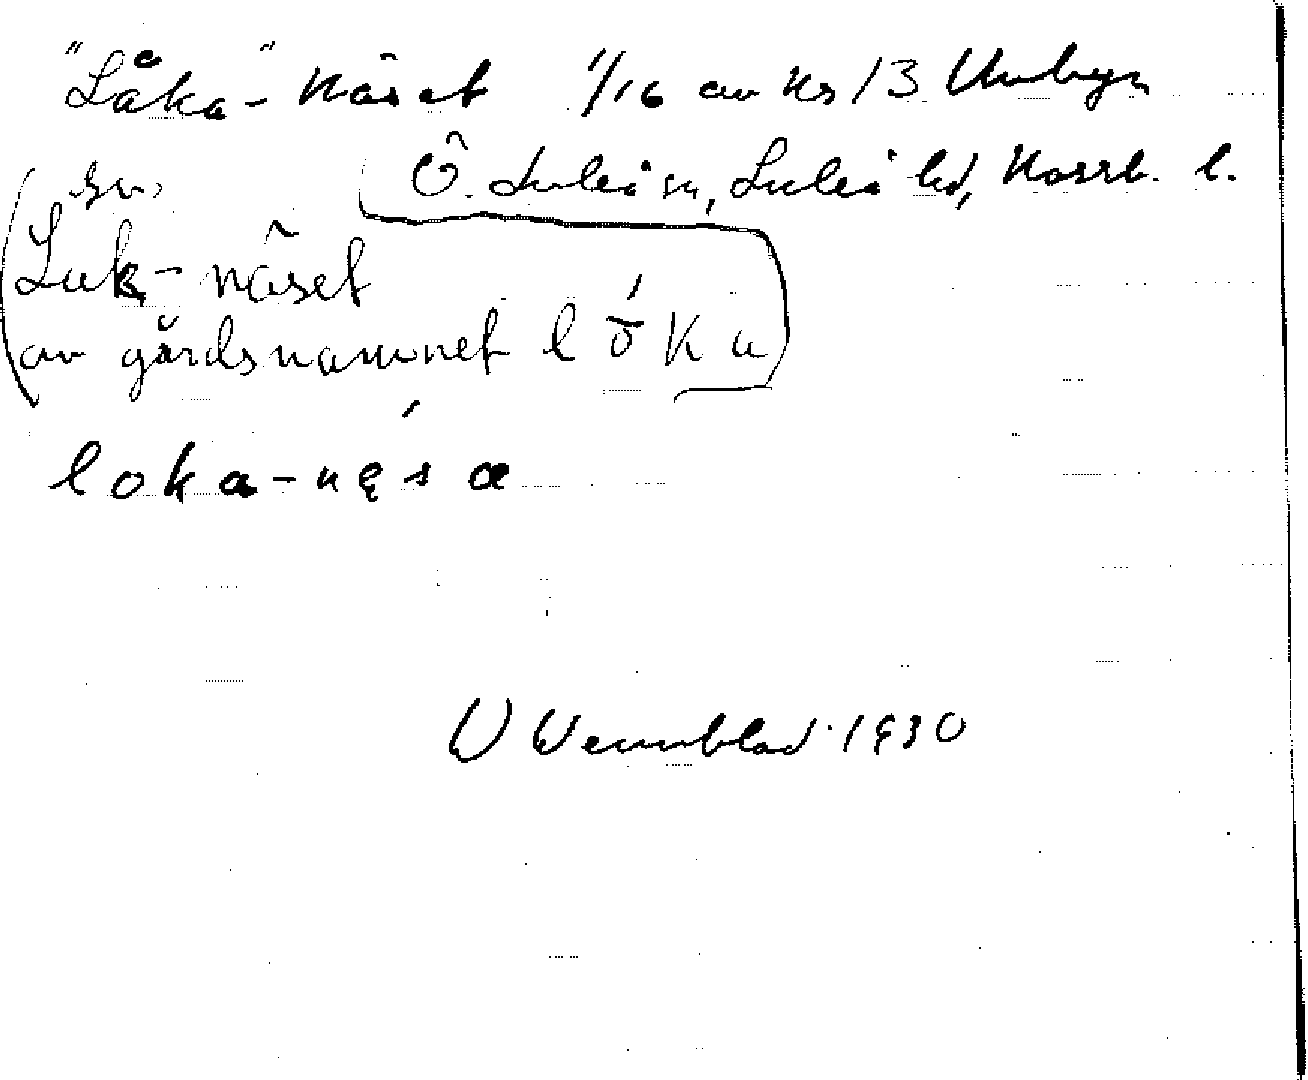 "Låka"-Näset 1/16 av Ns 13 Unbyn
Ö. Luleå sn, Luleå hd, Norrb. l.
sv.
Luk-näset
av gårdsnamnet lṓka
loka-nęsa
W Wennblad 1930